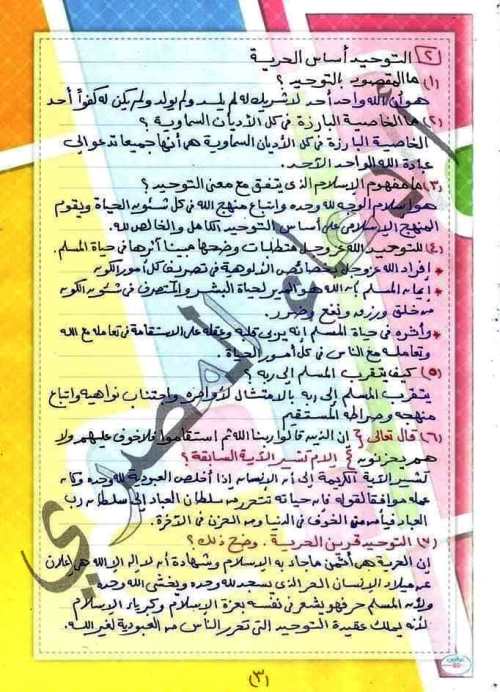 [٢] التوحيد أساس الحرية
(١) ما المقصود بالتوحيد ؟
هو أن الله واحد أحد لا شريك له لم يلد ولم يولد ولم يكن له كفوًا أحد
(٢) ما الخاصية البارزة فى كل الأديان السماوية ؟
الخاصية البارزة فى كل الأديان السماوية هى أنها جميعا تدعو إلى
عبادة الله الواحد الأحد.
(٣) ما مفهوم الإسلام الذى يتفق مع معنى التوحيد ؟
هو إسلام الوجه لله وحده واتباع منهج الله فى كل شئون الحياة ويقوم
المنهج الإسلامى على أساس التوحيد الكامل والخالص لله.
(٤) للتوحيد لله عز وجل متطلبات وضحها مبينا أثرها فى حياة المسلم.
* إفراد الله عز وجل بخصائص الألوهية فى تصريف كل أمور الكون
* إيمان المسلم بأن الله هو المدبر لحياة البشر والمتصرف فى شئون الكون
من خلق ورزق ونفع وضرر.
* وأثره فى حياة المسلم إنه يربى قلبه وعقله على الاستقامة فى تعامله مع الله
وتعامله مع الناس فى كل أمور الحياة.
(٥) كيف يتقرب المسلم إلى ربه ؟
يتقرب المسلم إلى ربه بالامتثال لأوامره واجتناب نواهيه واتباع
منهجه وصراطه المستقيم
(٦) قال تعالى { إن الذين قالوا ربنا الله ثم استقاموا فلا خوف عليهم ولا
هم يحزنون } إلام تشير الآية السابقة ؟
تشير الآية الكريمة إلى أن الإنسان إذا أخلص العبودية لله وحده وكان
عمله موافقا لقوله فإن حياته تتحرر من سلطان العباد إلى سلطان رب
العباد فيأمن من الخوف فى الدنيا ومن الحزن فى الآخرة.
(٧) التوحيد قرين الحرية. وضح ذلك ؟
إن الحرية هى أثمن ما جاد به الإسلام وشهادة أن لا إله إلا الله هى إعلان
عن ميلاد الإنسان الحر الذى يسجد لله وحده ويخشى الله وحده
ولأن المسلم حر فهو يشعر فى نفسه بعزة الإسلام وكبرياء الإسلام
لأنه يملك عقيدة التوحيد التى تحرر الناس من العبودية لغير الله.
(٣)